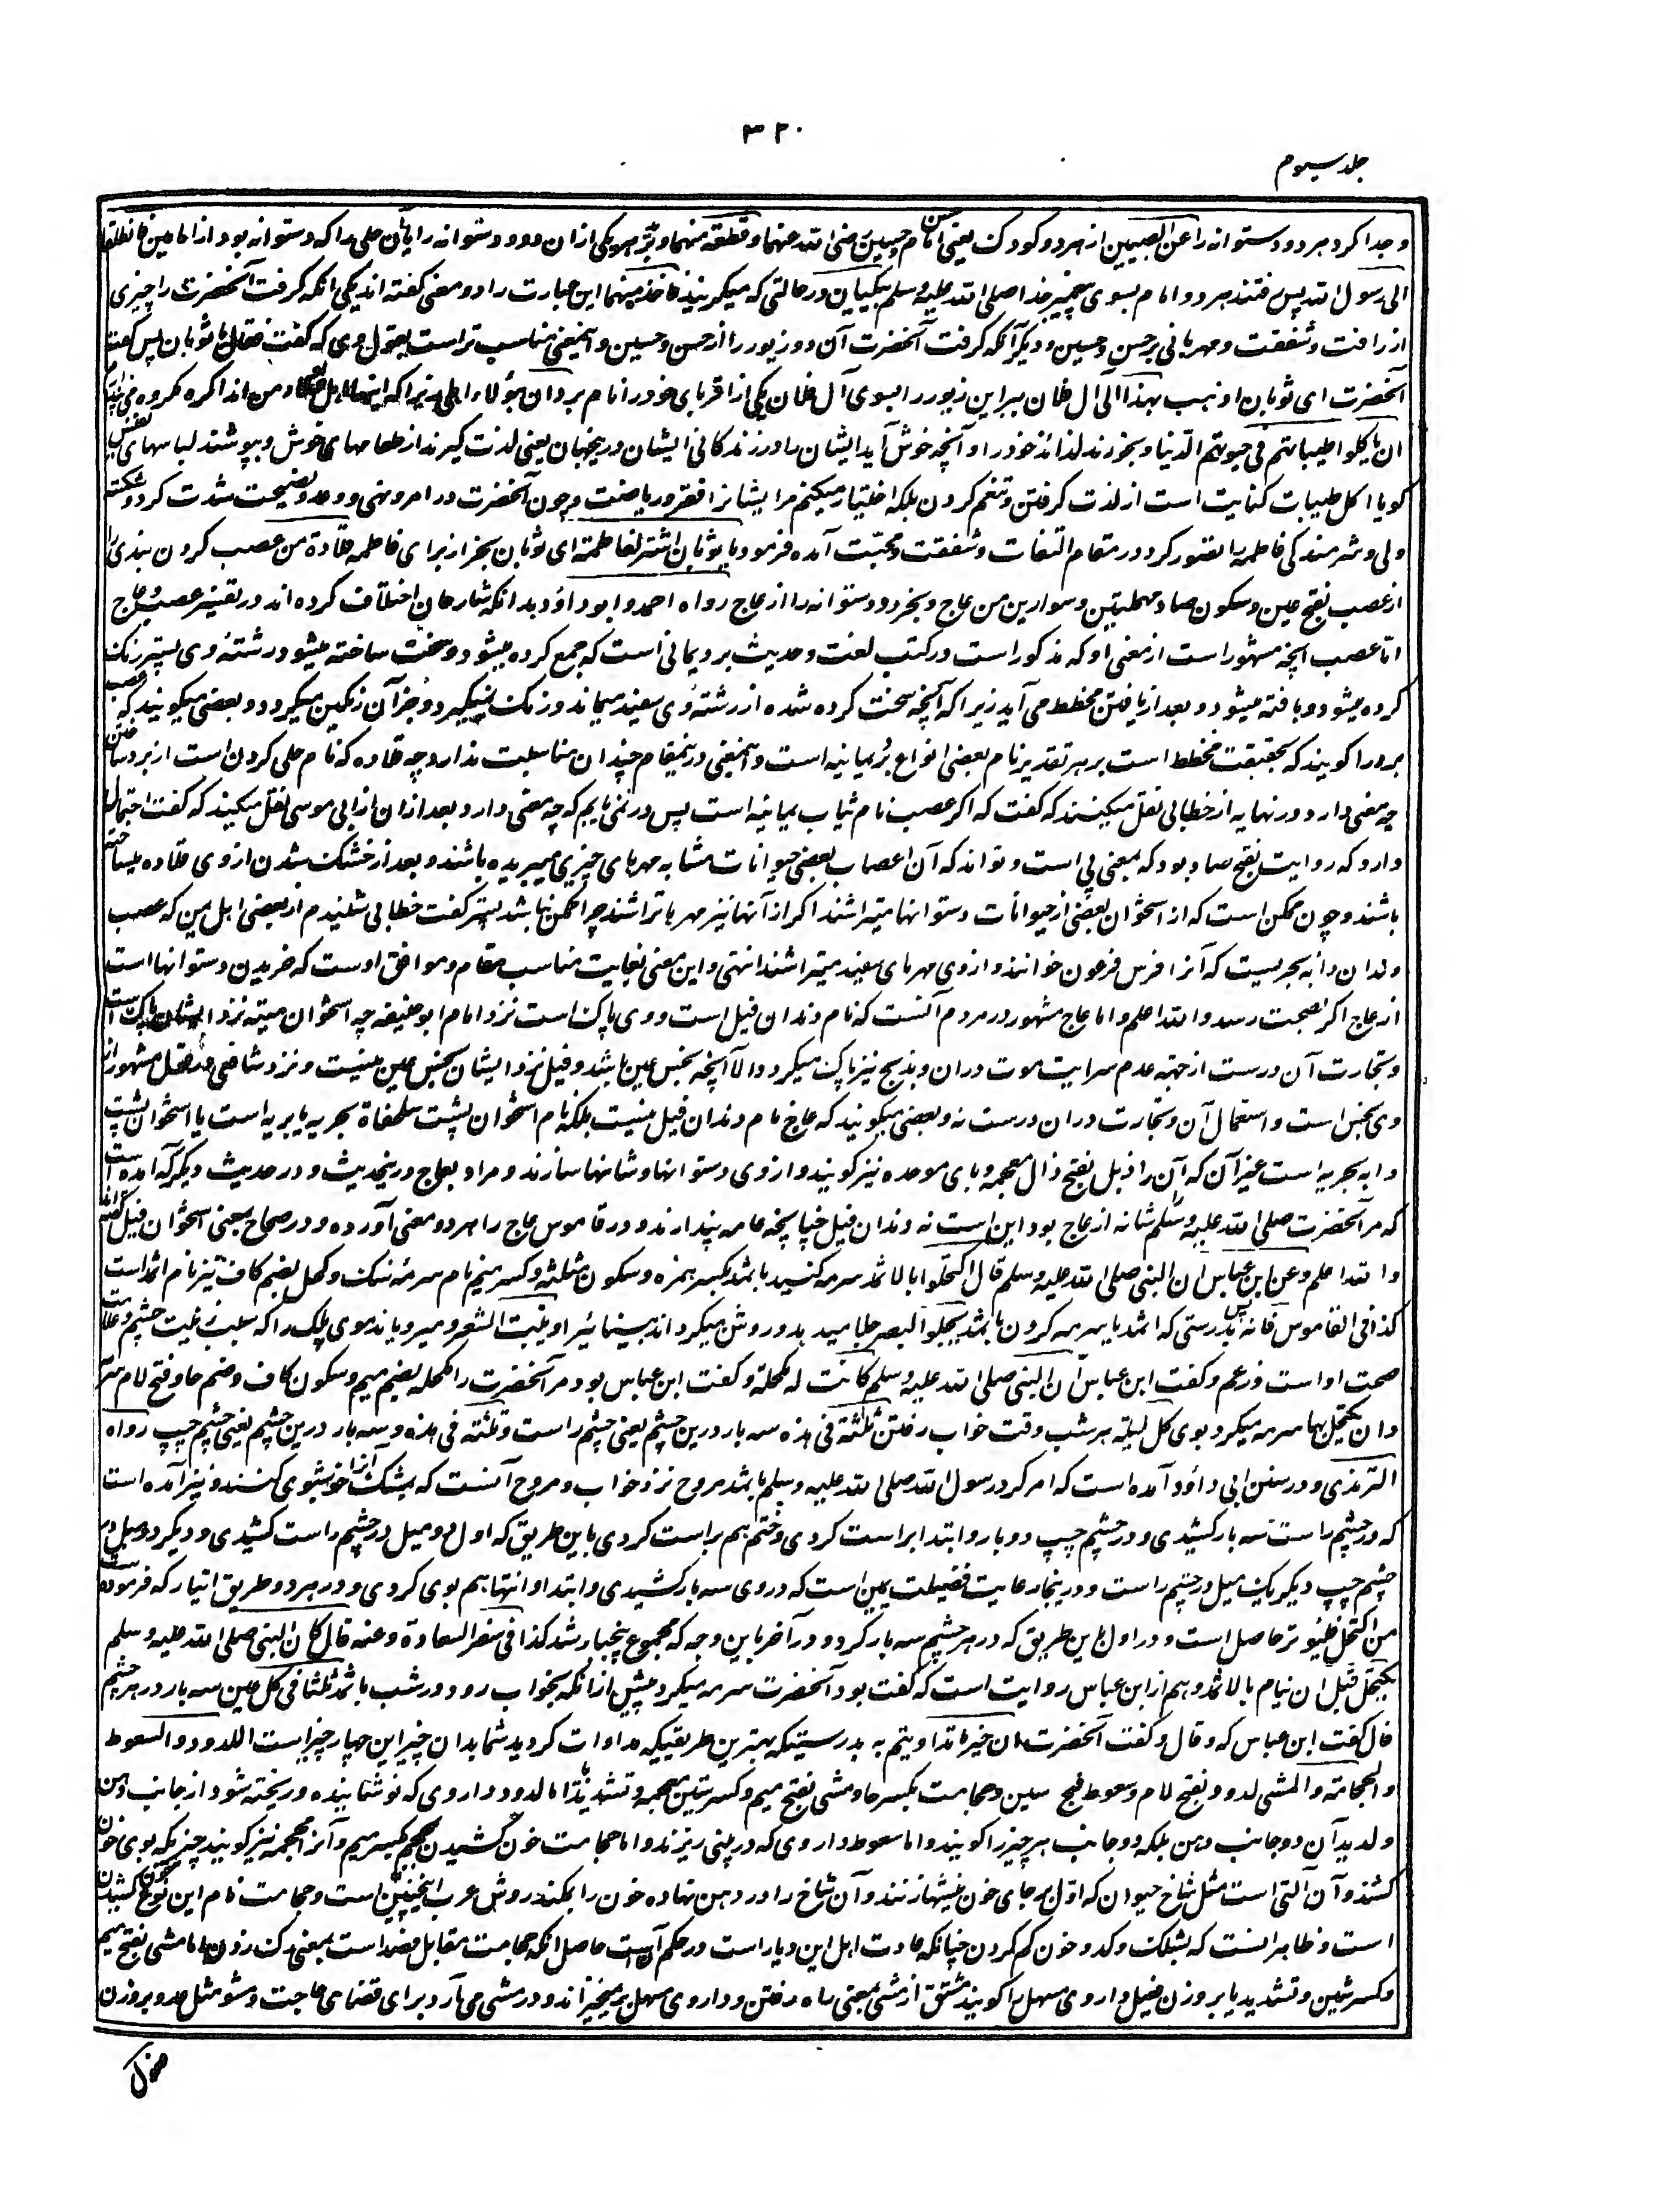 ۳۲۰
جلد سیوم
و جدا کرد هر دو دستوانه را عن الصبیین از هر دو کودک یعنی امام حسن و حسین رضی الله عنهما و قطعه منهما و برید هر یکی ازان دو دستوانه را یا آن حلی را که دستوانه بود از امامین فانطلقا
الی رسول الله پس رفتند هر دو امام بسوی پیغمبر خدا صلی الله علیه وسلم یبکیان در حالتی که میگریند فاخذه منهما این عبارت را دو معنی گفته اند یکی آنکه گرفت آنحضرت را چیزی
از رافت و شفقت و مهربانی بر حسن و حسین و دیگر آنکه گرفت آنحضرت آن دو زیور را از حسن و حسین و اینمعنی مناسب تر است بقول وی که گفت فقال یا ثوبان پس گفت
آنحضرت ای ثوبان اذهب بهذا الی آل فلان ببر این زیور را بسوی آل فلان یکی از اقربای خود را نام برد ان هؤلاء اهلی زیرا که اینها اهل من اند اکره مکروه می دارم
ان یاکلوا طیباتهم فی حیوتهم الدنیا و بخورند لذائذ خود را و آنچه خوش آید ایشان را در زندگانی ایشان درینجهان یعنی لذت گیرند از طعامهای خوش و بپوشند لباسهای نفیس
گویا اکل طیبات کنایت است از لذت گرفتن و تنعم کردن بلکه اختیار میکنم مر ایشانرا فقر و ریاضت و چون آنحضرت در امر و نهی و وعد و نصیحت شدت کرد و شکسته
دلی و شرمندگی فاطمه را تصور کرد در مقام التفات و شفقت و محبت آمده فرمود یا ثوبان اشتر لفاطمة ای ثوبان بخر از برای فاطمه قلادة من عصب گردن بندی را
از عصب بفتح عین و سکون صاد مهملتین و سوارین من عاج و بخر دو دستوانه را از عاج رواه احمد و ابو داؤد بدانکه شارحان اختلاف کرده اند در تفسیر عصب و عاج
اما عصب آنچه مشهور است از معنی او که مذکور است در کتب لغت و حدیث برد یمانی است که جمع کرده میشود و سخت ساخته میشود رشتهٔ وی پستر رنگ
کرده میشود و بافته میشود و بعد از بافتن مخطط می آید زیرا که آنچه سخت کرده شده از رشتهٔ وی سفید میماند و رنگ نمیگیرد و جز آن رنگین میگردد و بعضی میگویند که عصب
برد را گویند که بحقیقت مخطط است بر هر تقدیر نام بعضی انواع برد یمانیه است و اینمعنی درینمقام چندان مناسبت ندارد چه قلاده که نام حلی گردن است از برد ساختن
چه معنی دارد و در نهایه از خطابی نقل میکنند که گفت که اگر عصب نام ثیاب یمانیه است پس در نمی یابیم که چه معنی دارد و بعد ازان از ابی موسی نقل میکند که گفت احتمال
دارد که روایت بفتح صاد بود که بمعنی پی است و تواند که آن اعصاب بعضی حیوانات مشابه مهرهای چیزی میبریده باشند و بعد از خشک شدن ازوی قلاده میساخته
باشند و چون ممکن است که از استخوان بعضی از حیوانات دستوانها میتراشند اگر از آنها نیز مهرها تراشند چرا ممکن نباشد پستر گفت خطابی شنیدم از بعضی اهل یمن که عصب
دندان دابه بحریست که آنرا فرس فرعون خوانند و ازوی مهرهای سفید میتراشند انتهی و این معنی بغایت مناسب مقام و موافق اوست که خریدن دستوانها است
از عاج اگر بصحت رسد والله اعلم و اما عاج مشهور در مردم آنست که نام دندان فیل است و وی پاک است نزد امام ابو حنیفه چه استخوان میته نزد ایشان پاک است
و تجارت آن درست از جهة عدم سرایت موت دران و بذبح نیز پاک میگردد الا آنچه نجس عین باشد و فیل نزد ایشان نجس عین نیست و نزد شافعی در قول مشهور از
وی نجس است و استعمال آن و تجارت دران درست نه و بعضی میگویند که عاج نام دندان فیل نیست بلکه نام استخوان پشت سلحفاة بحریه یا بریه است یا استخوان پشت
دابه بحریه است غیر آن که آن را ذبل بفتح ذال معجمه و بای موحده نیز گویند و ازوی دستوانها و شانها سازند و مراد بعاج درینحدیث و در حدیث دیگر که آمده است
که مر آنحضرت صلی الله علیه وسلم شانه از عاج بود این است نه دندان فیل چنانچه عامه پندارند و در قاموس عاج را هر دو معنی آورده و در صحاح بمعنی استخوان فیل گفته
والله اعلم وعن ابن عباس ان النبی صلی الله علیه وسلم قال اکتحلوا بالاثمد سرمه کنید باثمد بکسر همزه و سکون مثلثه و کسر میم نام سرمه سنگ و کحل بضم کاف نیز نام اثمد است
کذا فی القاموس فانه پس بدرستی که اثمد یا سرمه کردن باثمد یجلو البصر جلا میدهد و روشن میگرداند بینائی را و ینبت الشعر و میرویاند موی پلک را که سبب زینت چشم و علامت
صحت او است و زعم و گفت ابن عباس ان النبی صلی الله علیه وسلم کانت له مکحلة و گفت ابن عباس بود مر آنحضرت را مکحله بضم میم و سکون کاف و ضم حا و فتح لام سرمه
دان یکتحل بها سرمه میکرد بوی کل لیلة هر شب وقت خواب رفتن ثلثة فی هذه سه بار درین چشم یعنی چشم راست و ثلثة فی هذه و سه بار درین چشم یعنی چشم چپ رواه
الترمذی و در سنن ابی داؤد آمده است که امر کرد رسول الله صلی الله علیه وسلم باثمد مروح نزد خواب و مروح آنست که بمشک آنرا خوشبوی کنند و نیز آمده است
که در چشم راست سه بار کشیدی و در چشم چپ دو بار و ابتدا براست کردی و ختم هم براست کردی باین طریق که اول دو میل در چشم راست کشیدی و دیگر دو میل در
چشم چپ دیگر یک میل در چشم راست و درینجا رعایت فضیلت یمین است که در وی سه بار کشیدی و ابتدا و انتها هم بوی کردی و در هر دو طریق ایتار که فرموده است
من اکتحل فلیوتر حاصل است و در اول باین طریق که در هر چشم سه بار کرد و در آخر باین وجه که مجموع پنج بار شد کذا فی سفر السعادة وعنه قال کان النبی صلی الله علیه وسلم
یکتحل قبل ان ینام بالاثمد و هم از ابن عباس روایت است که گفت بود آنحضرت سرمه میکرد پیش ازانکه بخواب رود در شب باثمد ثلثا فی کل عین سه بار در هر چشم
قال گفت ابن عباس که وقال و گفت آنحضرت ان خیر ما تداویتم به بدرستیکه بهترین طریقیکه مداوات کردید شما بدان چیز این چهار چیز است اللدود والسعوط
والحجامة والمشی لدود بفتح لام و سعوط بفتح سین و حجامت بکسر حا و مشی بفتح میم و کسر شین معجمه و تشدید یا اما لدود داروی که نوشانیده و ریخته شود از جانب دهن
و لدید آن دو جانب دهن بلکه دو جانب هر چیز را گویند و اما سعوط داروی که در بینی ریزند و اما حجامت خون کشیدن محجم بکسر میم و آنرا محجمه نیز گویند چیزیکه بوی خون
کشند و آن آلتی است مثل شاخ حیوان که اول بر جای خون نیشها زنند و آن شاخ را در دهن نهاده خون را بمکند روش عرب اینچنین است و حجامت نام این نوع خون کشیدن
است و ظاهر آنست که بشلک و کدو خون کم کردن چنانکه عادت اهل این دیار است در حکم آنست حاصل آنکه حجامت مقابل فصد است بمعنی رگ زدن اما مشی بفتح میم
و کسر شین و تشدید یا بر وزن فعیل داروی مسهل را گویند مشتق از مشی بمعنی راه رفتن و داروی مسهل بر میخیزاند و در مشی می آرد برای قضای حاجت و مشو مثل عدو بر وزن